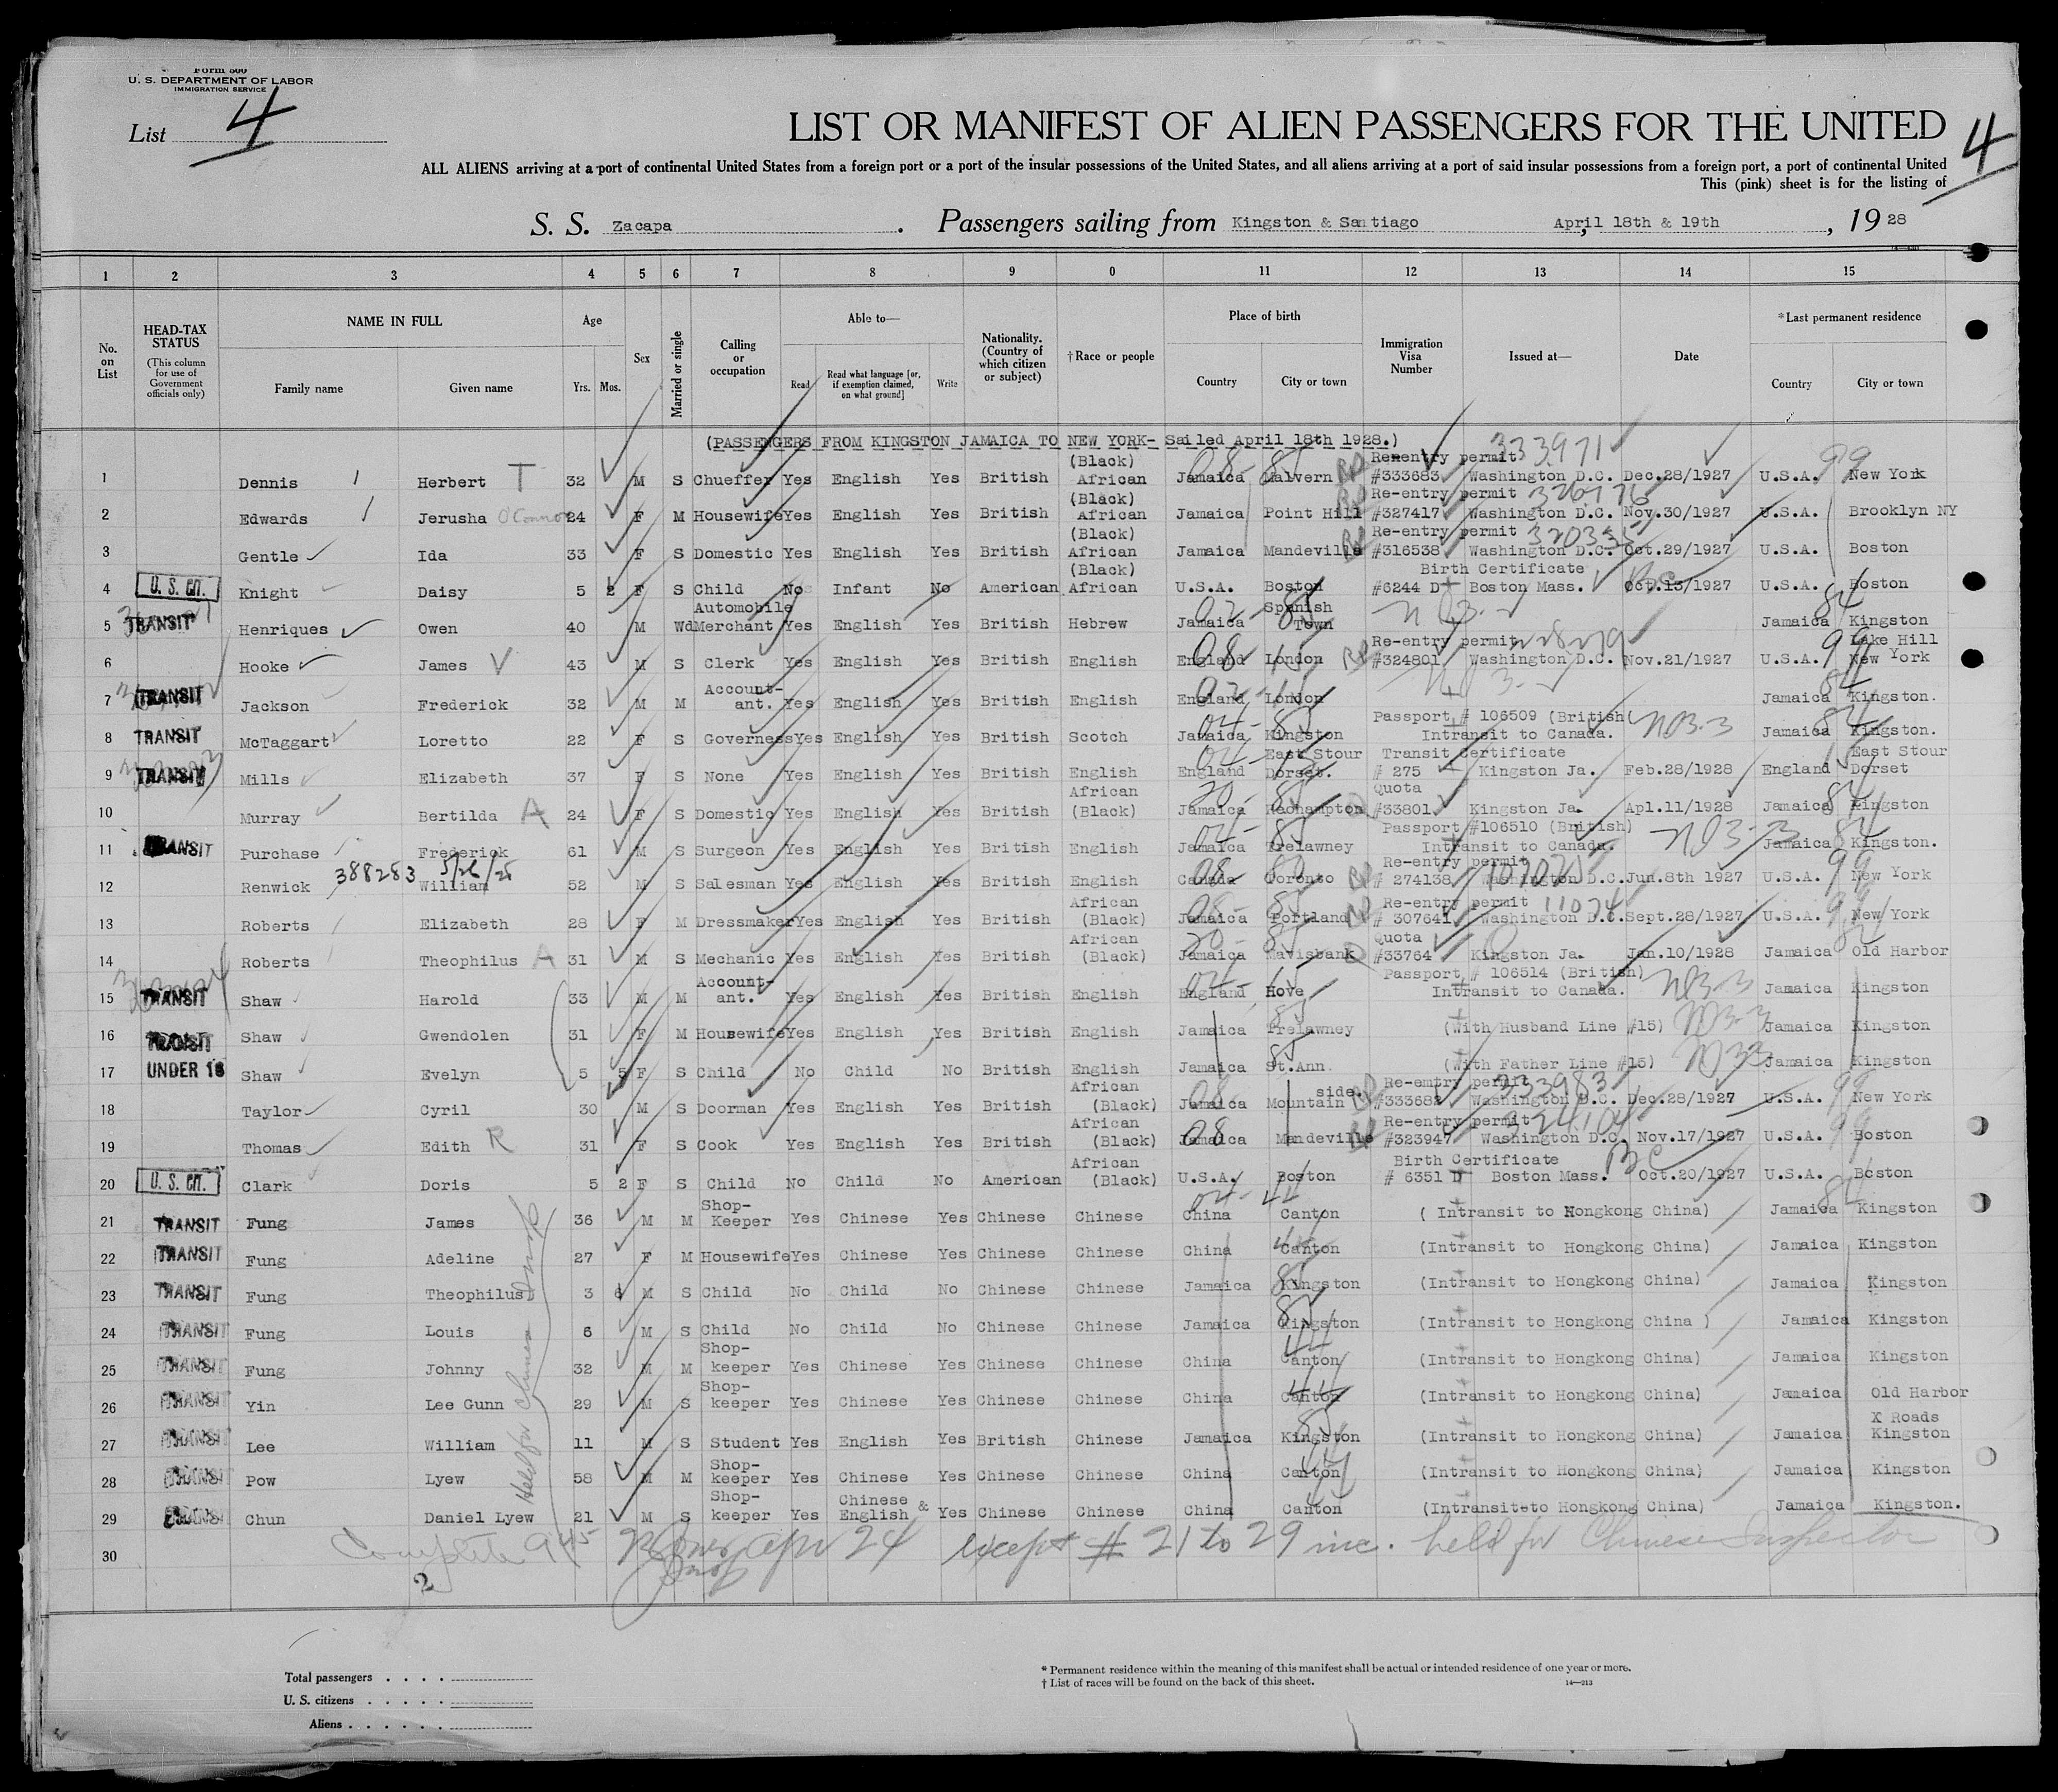 Form 500
U. S. DEPARTMENT OF LABOR
IMMIGRATION SERVICE
List 4
LIST OR MANIFEST OF ALIEN PASSENGERS FOR THE UNITED
4
ALL ALIENS arriving at a port of continental United States from a foreign port or a port of the insular possessions of the United States, and all aliens arriving at a port of said insular possessions from a foreign port, a port of continental United
This (pink) sheet is for the listing of
S. S. Zacapa. Passengers sailing from Kingston & Santiago April 18th & 19th, 1928
1 2 3 4 5 6 7 8 9 0 11 12 13 14 15
No. on List
HEAD-TAX STATUS (This column for use of Government officials only)
NAME IN FULL Family name Given name
Age Yrs. Mos.
Sex
Married or single
Calling or occupation
Able to— Read Read what language [or, if exemption claimed, on what ground] Write
Nationality. (Country of which citizen or subject)
†Race or people
Place of birth Country City or town
Immigration Visa Number
Issued at—
Date
*Last permanent residence Country City or town
(PASSENGERS FROM KINGSTON JAMAICA TO NEW YORK- Sailed April 18th 1928.)
333971
1 Dennis Herbert T 32 M S Chueffer Yes English Yes British (Black) African Jamaica Malvern Re-entry permit #333683 Washington D.C. Dec.28/1927 U.S.A. 99 New York
2 Edwards Jerusha O'Connor 24 F M Housewife Yes English Yes British (Black) African Jamaica Point Hill Re-entry permit #327417 Washington D.C. Nov.30/1927 U.S.A. Brooklyn NY
3 Gentle Ida 33 F S Domestic Yes English Yes British (Black) African Jamaica Mandeville Re-entry permit #316538 Washington D.C. Oct.29/1927 U.S.A. Boston
4 U. S. CIT. Knight Daisy 5 2 F S Child No Infant No American (Black) African U.S.A. Boston Birth Certificate #6244 D Boston Mass. Oct.13/1927 U.S.A. Boston
5 TRANSIT Henriques Owen 40 M Wd Automobile Merchant Yes English Yes British Hebrew Jamaica Spanish Town Jamaica 84 Kingston
6 Hooke James V 43 M S Clerk Yes English Yes British English England London Re-entry permit #324801 Washington D.C. Nov.21/1927 U.S.A. 99 Lake Hill New York
7 TRANSIT Jackson Frederick 32 M M Account-ant. Yes English Yes British English England London Jamaica 84 Kingston.
8 TRANSIT McTaggart Loretto 22 F S Governess Yes English Yes British Scotch Jamaica Kingston Passport # 106509 (British) Intransit to Canada. Jamaica Kingston.
9 TRANSIT Mills Elizabeth 37 F S None Yes English Yes British English England East Stour Dorset. Transit Certificate # 275 Kingston Ja. Feb.28/1928 England East Stour Dorset
10 Murray Bertilda A 24 F S Domestic Yes English Yes British African (Black) Jamaica Roehampton Quota #33801 Kingston Ja. Apl.11/1928 Jamaica Kingston
11 TRANSIT Purchase Frederick 61 M S Surgeon Yes English Yes British English Jamaica Trelawney Passport #106510 (British) Intransit to Canada. Jamaica Kingston.
388283 5/26/28
12 Renwick William 52 M S Salesman Yes English Yes British English Canada Toronto Re-entry permit # 274138 Washington D.C. Jun.8th 1927 U.S.A. 99 New York
13 Roberts Elizabeth 28 F M Dressmaker Yes English Yes British African (Black) Jamaica Portland Re-entry permit # 307641 Washington D.C. Sept.28/1927 U.S.A. New York
14 Roberts Theophilus A 31 M S Mechanic Yes English Yes British African (Black) Jamaica Mavisbank Quota #33764 Kingston Ja. Jan.10/1928 Jamaica Old Harbor
15 TRANSIT Shaw Harold 33 M M Account-ant. Yes English Yes British English England Hove Passport # 106514 (British) Intransit to Canada. Jamaica Kingston
16 TRANSIT Shaw Gwendolen 31 F M Housewife Yes English Yes British English Jamaica Trelawney (With Husband Line #15) Jamaica Kingston
17 UNDER 16 Shaw Evelyn 5 5 F S Child No Child No British English Jamaica St.Ann. (With Father Line #15) Jamaica Kingston
18 Taylor Cyril 30 M S Doorman Yes English Yes British African (Black) Jamaica Mountain side. Re-entry permit 333983 #333682 Washington D.C. Dec.28/1927 U.S.A. 99 New York
19 Thomas Edith R 31 F S Cook Yes English Yes British African (Black) Jamaica Mandeville Re-entry permit 324104 #323947 Washington D.C. Nov.17/1927 U.S.A. 99 Boston
20 U. S. CIT. Clark Doris 5 2 F S Child No Child No American African (Black) U.S.A. Boston Birth Certificate # 6351 D Boston Mass. Oct.20/1927 U.S.A. Boston
21 TRANSIT Fung James 36 M M Shop-Keeper Yes Chinese Yes Chinese Chinese China Canton ( Intransit to Hongkong China) Jamaica 84 Kingston
22 TRANSIT Fung Adeline 27 F M Housewife Yes Chinese Yes Chinese Chinese China Canton (Intransit to Hongkong China) Jamaica Kingston
23 TRANSIT Fung Theophilus 3 6 M S Child No Child No Chinese Chinese Jamaica Kingston (Intransit to Hongkong China) Jamaica Kingston
24 TRANSIT Fung Louis 6 M S Child No Child No Chinese Chinese Jamaica Kingston (Intransit to Hongkong China ) Jamaica Kingston
25 TRANSIT Fung Johnny 32 M M Shop-keeper Yes Chinese Yes Chinese Chinese China Canton (Intransit to Hongkong China) Jamaica Kingston
26 TRANSIT Yin Lee Gunn 29 M S Shop-keeper Yes Chinese Yes Chinese Chinese China Canton (Intransit to Hongkong China) Jamaica Old Harbor
27 TRANSIT Lee William 11 M S Student Yes English Yes British Chinese Jamaica Kingston (Intransit to Hongkong China) Jamaica X Roads Kingston
28 TRANSIT Pow Lyew 58 M M Shop-keeper Yes Chinese Yes Chinese Chinese China Canton (Intransit to Hongkong China) Jamaica Kingston
29 TRANSIT Chun Daniel Lyew 21 M S Shop-keeper Yes Chinese & English Yes Chinese Chinese China Canton (Intransit-to Hongkong China) Jamaica Kingston.
Held for Chinese Insp
30 Complete 945 apr 24 except # 21 to 29 inc. held for Chinese Inspector
2
Total passengers . . . .
U. S. citizens . . . . .
Aliens . . . . . .
* Permanent residence within the meaning of this manifest shall be actual or intended residence of one year or more.
† List of races will be found on the back of this sheet. 14—213